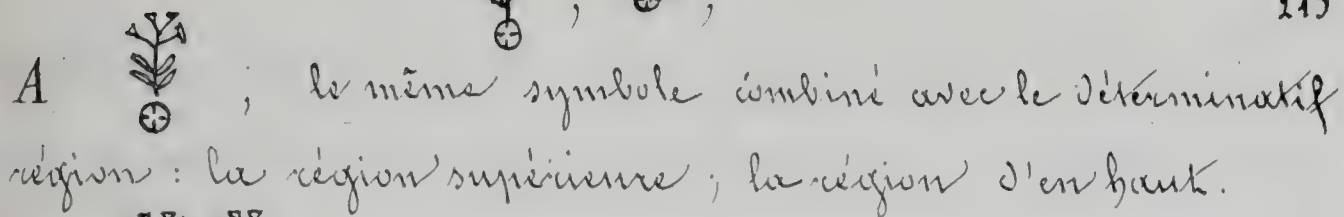 A ; le même symbole combiné avec le déterminatif
région : la région supérieure ; la région d'en haut.